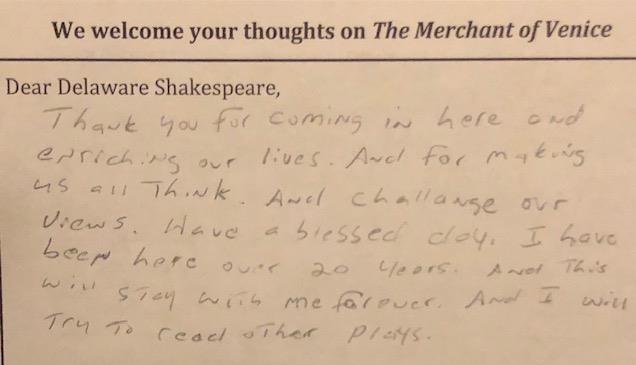 We welcome your thoughts on The Merchant of Venice
Dear Delaware Shakespeare,
Thank you for coming in here and
enriching our lives. And for making
us all Think. And challange our
Views. Have a blessed day. I have
been here over 20 years. And This
will stay with me forever. And I will
Try To read other plays.